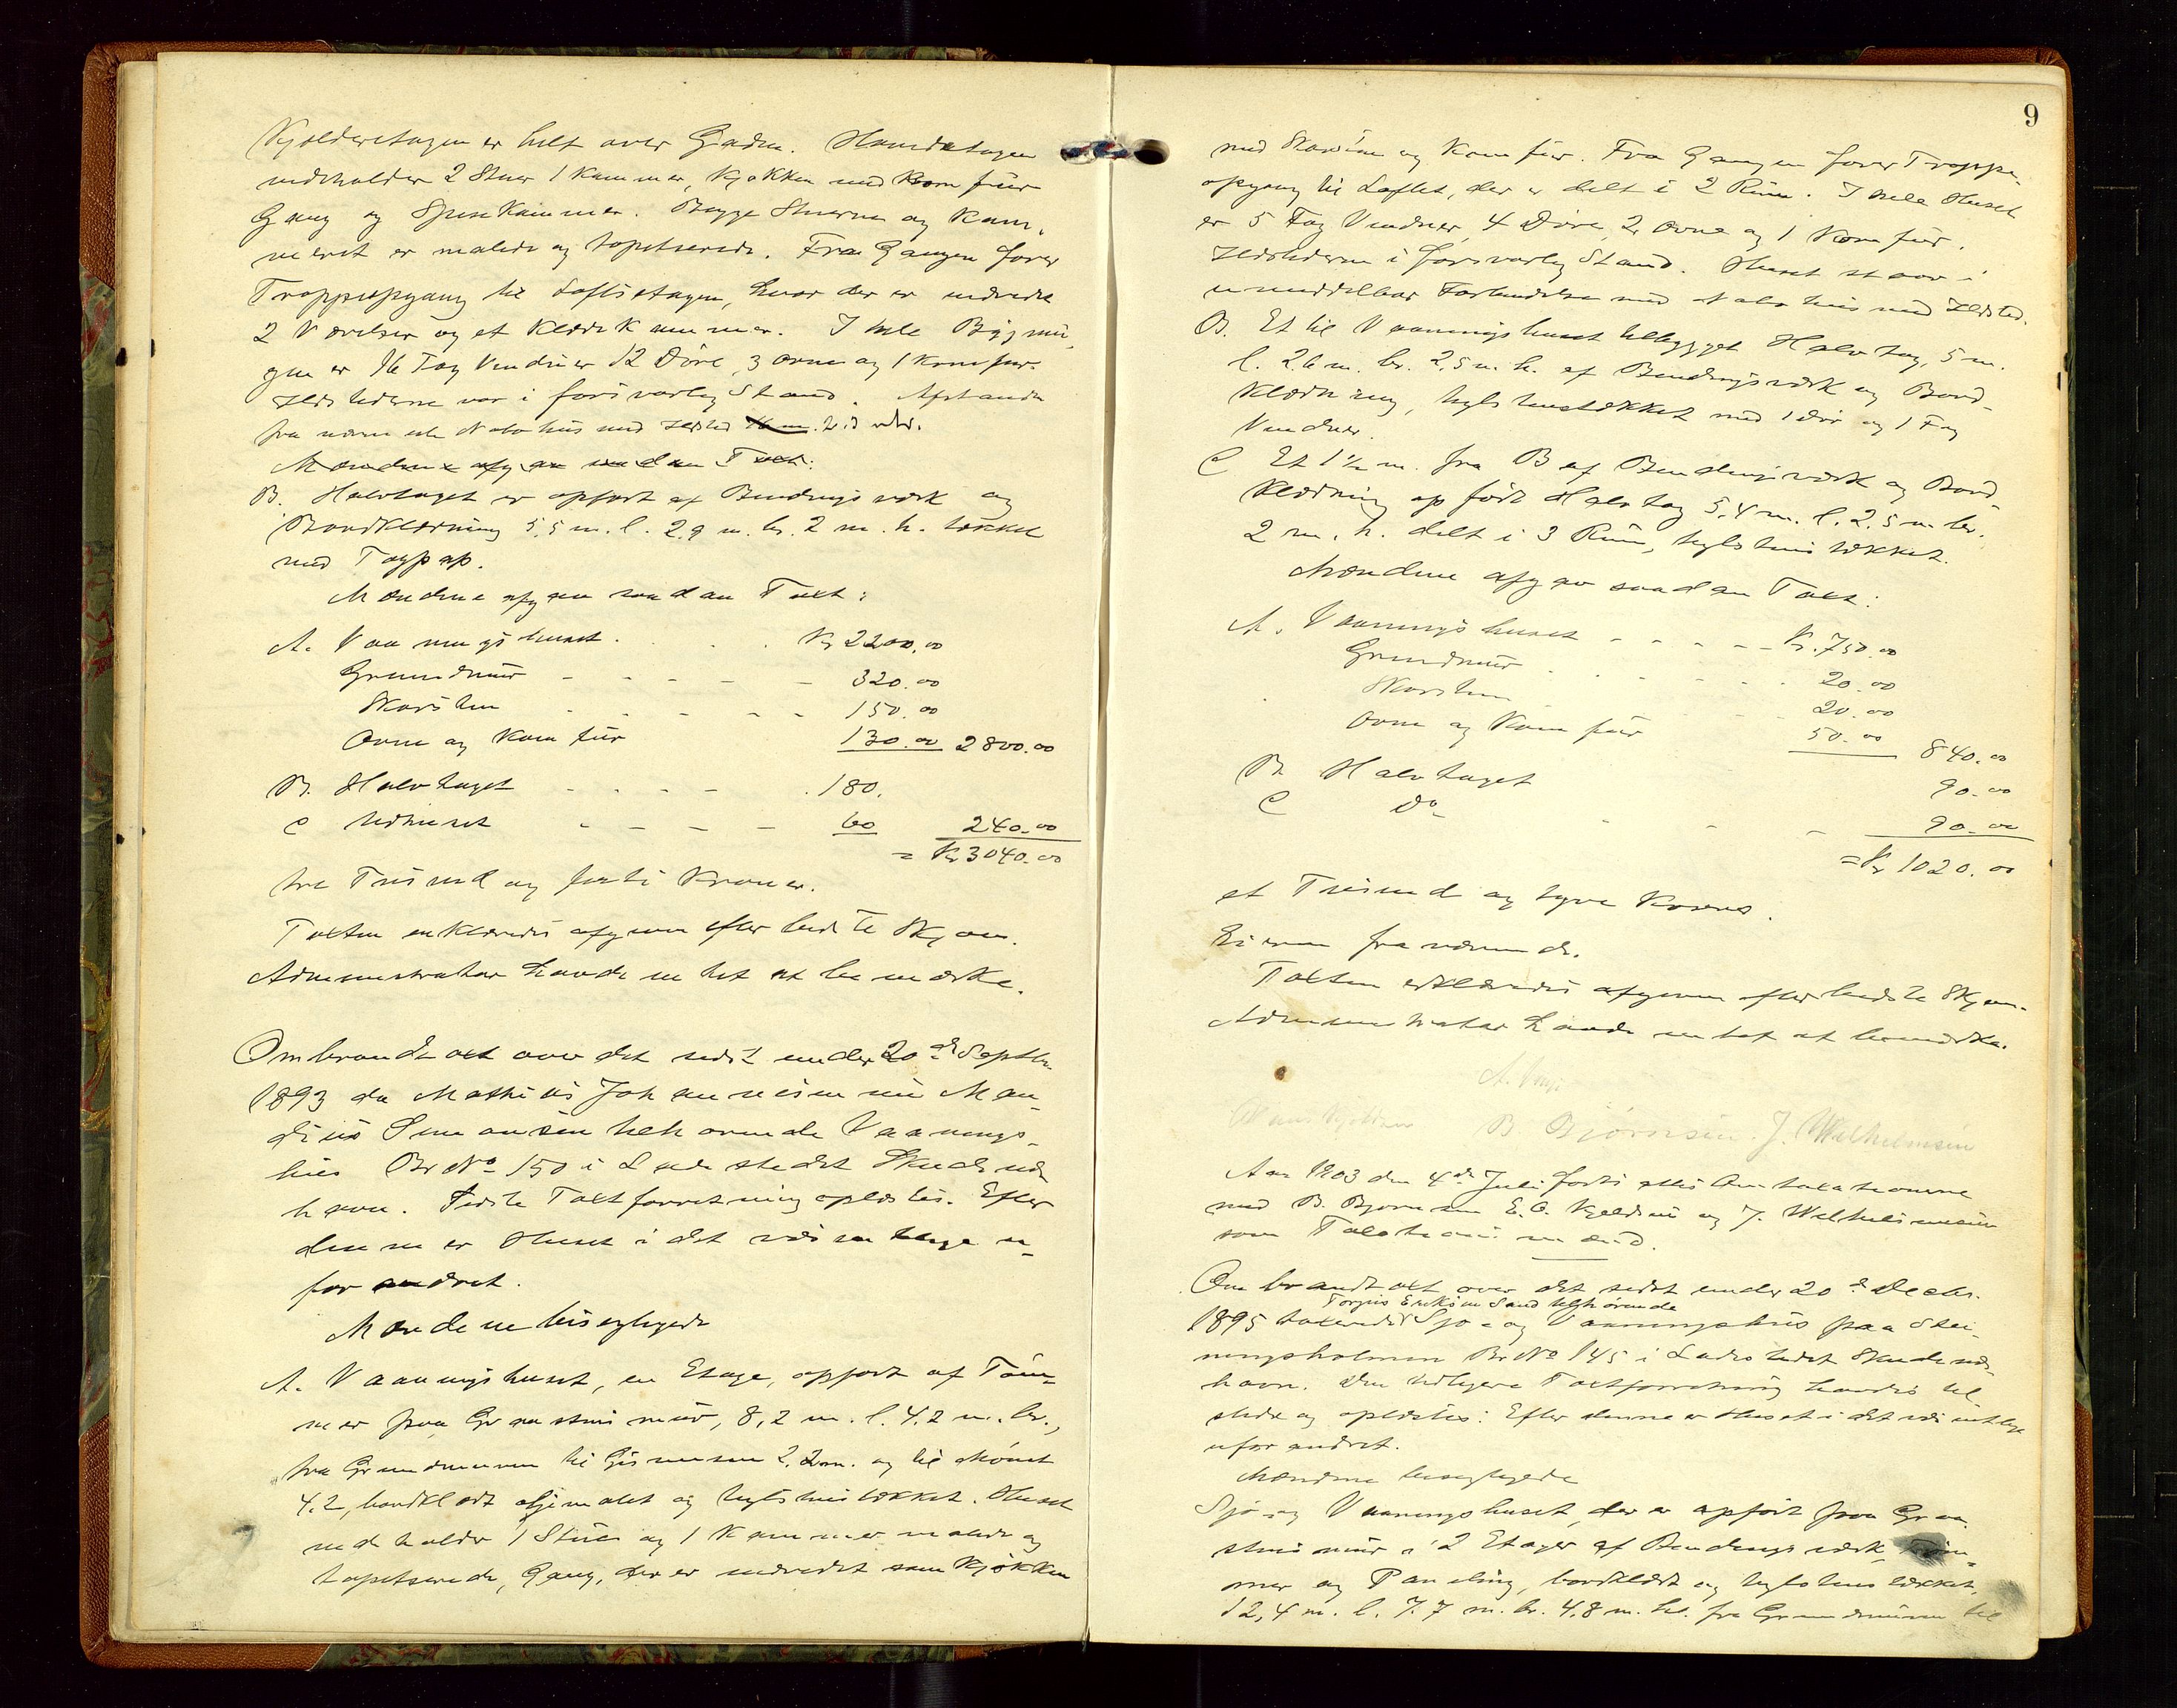 Kjelderetagen er helt over Gaden. Hovedetagen
indeholder 2 Stuer 1 Kammer, Kjøkken med Komfür
Gang og SpiseKammer. Begge Stuerne og Kam-
meret er malede og tapetserede. Fra Gangen fører
Troppeopgang til Loftsetagen, hvor der er indredet
2 Værelser og et Klædekammer. I hele Bygnin-
gen er 16 Fag Vinduer 12 Döre, 3 ovne og 1 Komfür.
Ildstederne var i forsvarlig Stand. Afstanden
fra nærmeste Nabohüs med Ildsted
Mændene afgav sådan Taxt:
B. Halvtaget er opført af Bindingsværk og
Bordklædning 5,5 m. l. 2,9 m. br. 2 m. h. tækket
med Tagpap.
Mændene afgav saadan Taxt:
A. Vaaningshuset . . . Kr 2200.00
Grundmür - - - - - 320.00
Skorsten - - - - 150.00
Ovne og Komfür 130.00 2800.00
B. Halvtaget - - - - 180.
C Udhuset - - - - 60 240.00
= Kr 3040.00
tre Tusind og forti Kroner.
Taxten erklæredes afgiven efter bedste Skjøn.
Administrator havde intet at bemærke.
Ombrandtaxt over det sidst under 20de Septbr.
1893 da Mathias Johannesen nü Man-
dius Simonsen tilhørende Vaanings-
hüs Br No 150 i Ladestedet Skudenes-
havn. Sidste Taxtforretning oplæstes. Efter
denne er Huset i det væsentlige u-
forandret.
Mændene besigtigede
A. Vaaningshuset, en Etage, opført af Töm-
mer paa Graastensmür, 8,2 m. l. 4,2 m. br.,
fra Grundmuren til Gesimsen 2,2 m. og til Mönet
4.2, bordklædt oljemalet og teglstenstækket. Huset
indeholder 1 Stüe og 1 Kammer malede og
tapetserede, Gang, der er indredet som Kjøkken
9
med Skorsten og Komfür. Fra Gangen fører Troppe-
opgang til Loftet, der er delt i 2 Rüm. I hele Huset
er 5 Fag Vinduer, 4 Döre, 2 ovne og 1 Komfür.
Ildstederne i forsvarlig Stand. Huset staar i
umiddelbar Forbindelse med Nabohüs med Ildsted.
B. Et til Vaaningshuset tilbygget Halvtag, 5 m.
l. 2,6 m. br. 2,5 m. h. af Bindingsværk og Bord-
klædning, teglstenstækket med 1 dör og 1 Fag
Vinduer.
C Et 1 1/2 m. fra B af Bindingsværk og Bord
klædning opført Halvtag 5,4 m. l. 2,5 m. br.
2 m. h. delt i 3 Rüm, teglstenstækket.
Mændene afgav saadan Taxt:
A. Vaaningshuset - - - - Kr. 750.00
Grundmür . . . . . 20.00
Skorsten - - 20.00
Ovne og Komfür 50.00 840.00
B. Halvtaget 90.00
C Do - - - 90.00
= Kr 1020.00
et Tusind og tyve Kroner.
Eieren fraværende.
Taxten erklæredes afgiven efter bedste Skjøn.
Administrator havde intet at bemærke.
B Bjørnsen. J. Wilhelmsen
Aar 1903 den 4de Juli
med B. Bjørnsen E. O. Kjeldsen og J. Wilhelmsen
som Taxationsmænd.
Ombrandtaxt over det sidst under 20de Decbr.
Torgius Eriksen Sand tilhørende
1895 taxerede Sjø- og Vaaningshüs paa Stei-
ningsholmen Br No 145 i Ladestedet Skudenes-
havn. Den tidligere Taxtforretning havdes til
stede og oplæstes: Efter denne er Huset i det væsentlige
uforandret.
Mændene besigtigede
Sjø- og Vaaningshuset, der er opført paa Graa-
stensmür i 2 Etager af Bindingsværk, Töm-
mer og Paneling, bordklædt og teglstenstækket,
12,4 m. l. 7.7 m. br. 4.8 m. h. fra Grundmüren til